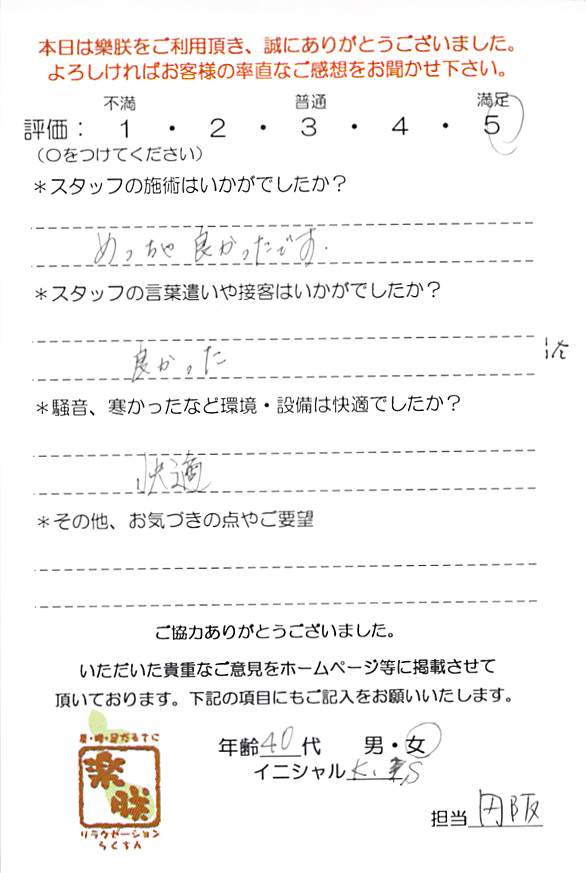 本日は樂朕をご利用頂き、誠にありがとうございました。
よろしければお客様の率直なご感想をお聞かせ下さい。
不満 普通 満足
評価： 1 ・ 2 ・ 3 ・ 4 ・ 5
（○をつけてください）
＊スタッフの施術はいかがでしたか？
めっちゃ良かったです.
＊スタッフの言葉遣いや接客はいかがでしたか？
良かった
＊騒音、寒かったなど環境・設備は快適でしたか？
快適
＊その他、お気づきの点やご要望
ご協力ありがとうございました。
いただいた貴重なご意見をホームページ等に掲載させて
頂いております。下記の項目にもご記入をお願いいたします。
年齢40代 男・女
イニシャル K.S
担当 円阪
樂朕
リラクゼーション
らくちん